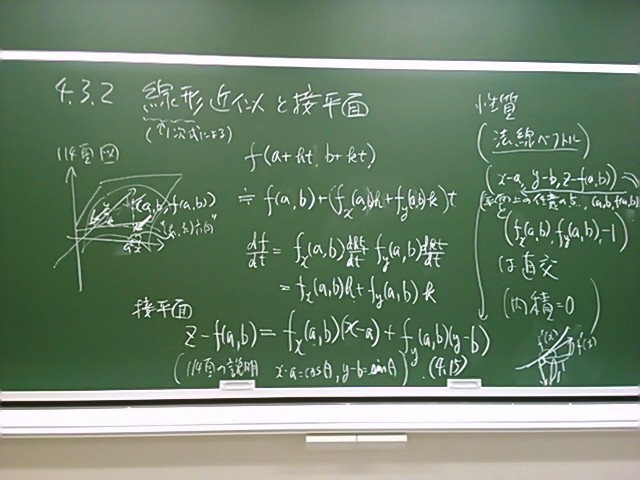 4.3.2 線形近似と接平面
(1次式による)
114頁図
(a,b,f(a,b))
f(a+ht, b+kt)
≒ f(a,b)+(f_x(a,b)h+f_y(a,b)k)t
df/dt = f_x(a,b) dht/dt + f_y(a,b) dkt/dt
= f_x(a,b)h+f_y(a,b)k
接平面
z-f(a,b)=f_x(a,b)(x-a)+f_y(a,b)(y-b)
(114頁の説明 x-a=cosθ, y-b=sinθ) (4.15)
性質
(法線ベクトル)
(x-a, y-b, z-f(a,b))
上の任意の点, (a,b,f(a,b))
(f_x(a,b), f_y(a,b), -1)
は直交
(内積=0)
f(x)